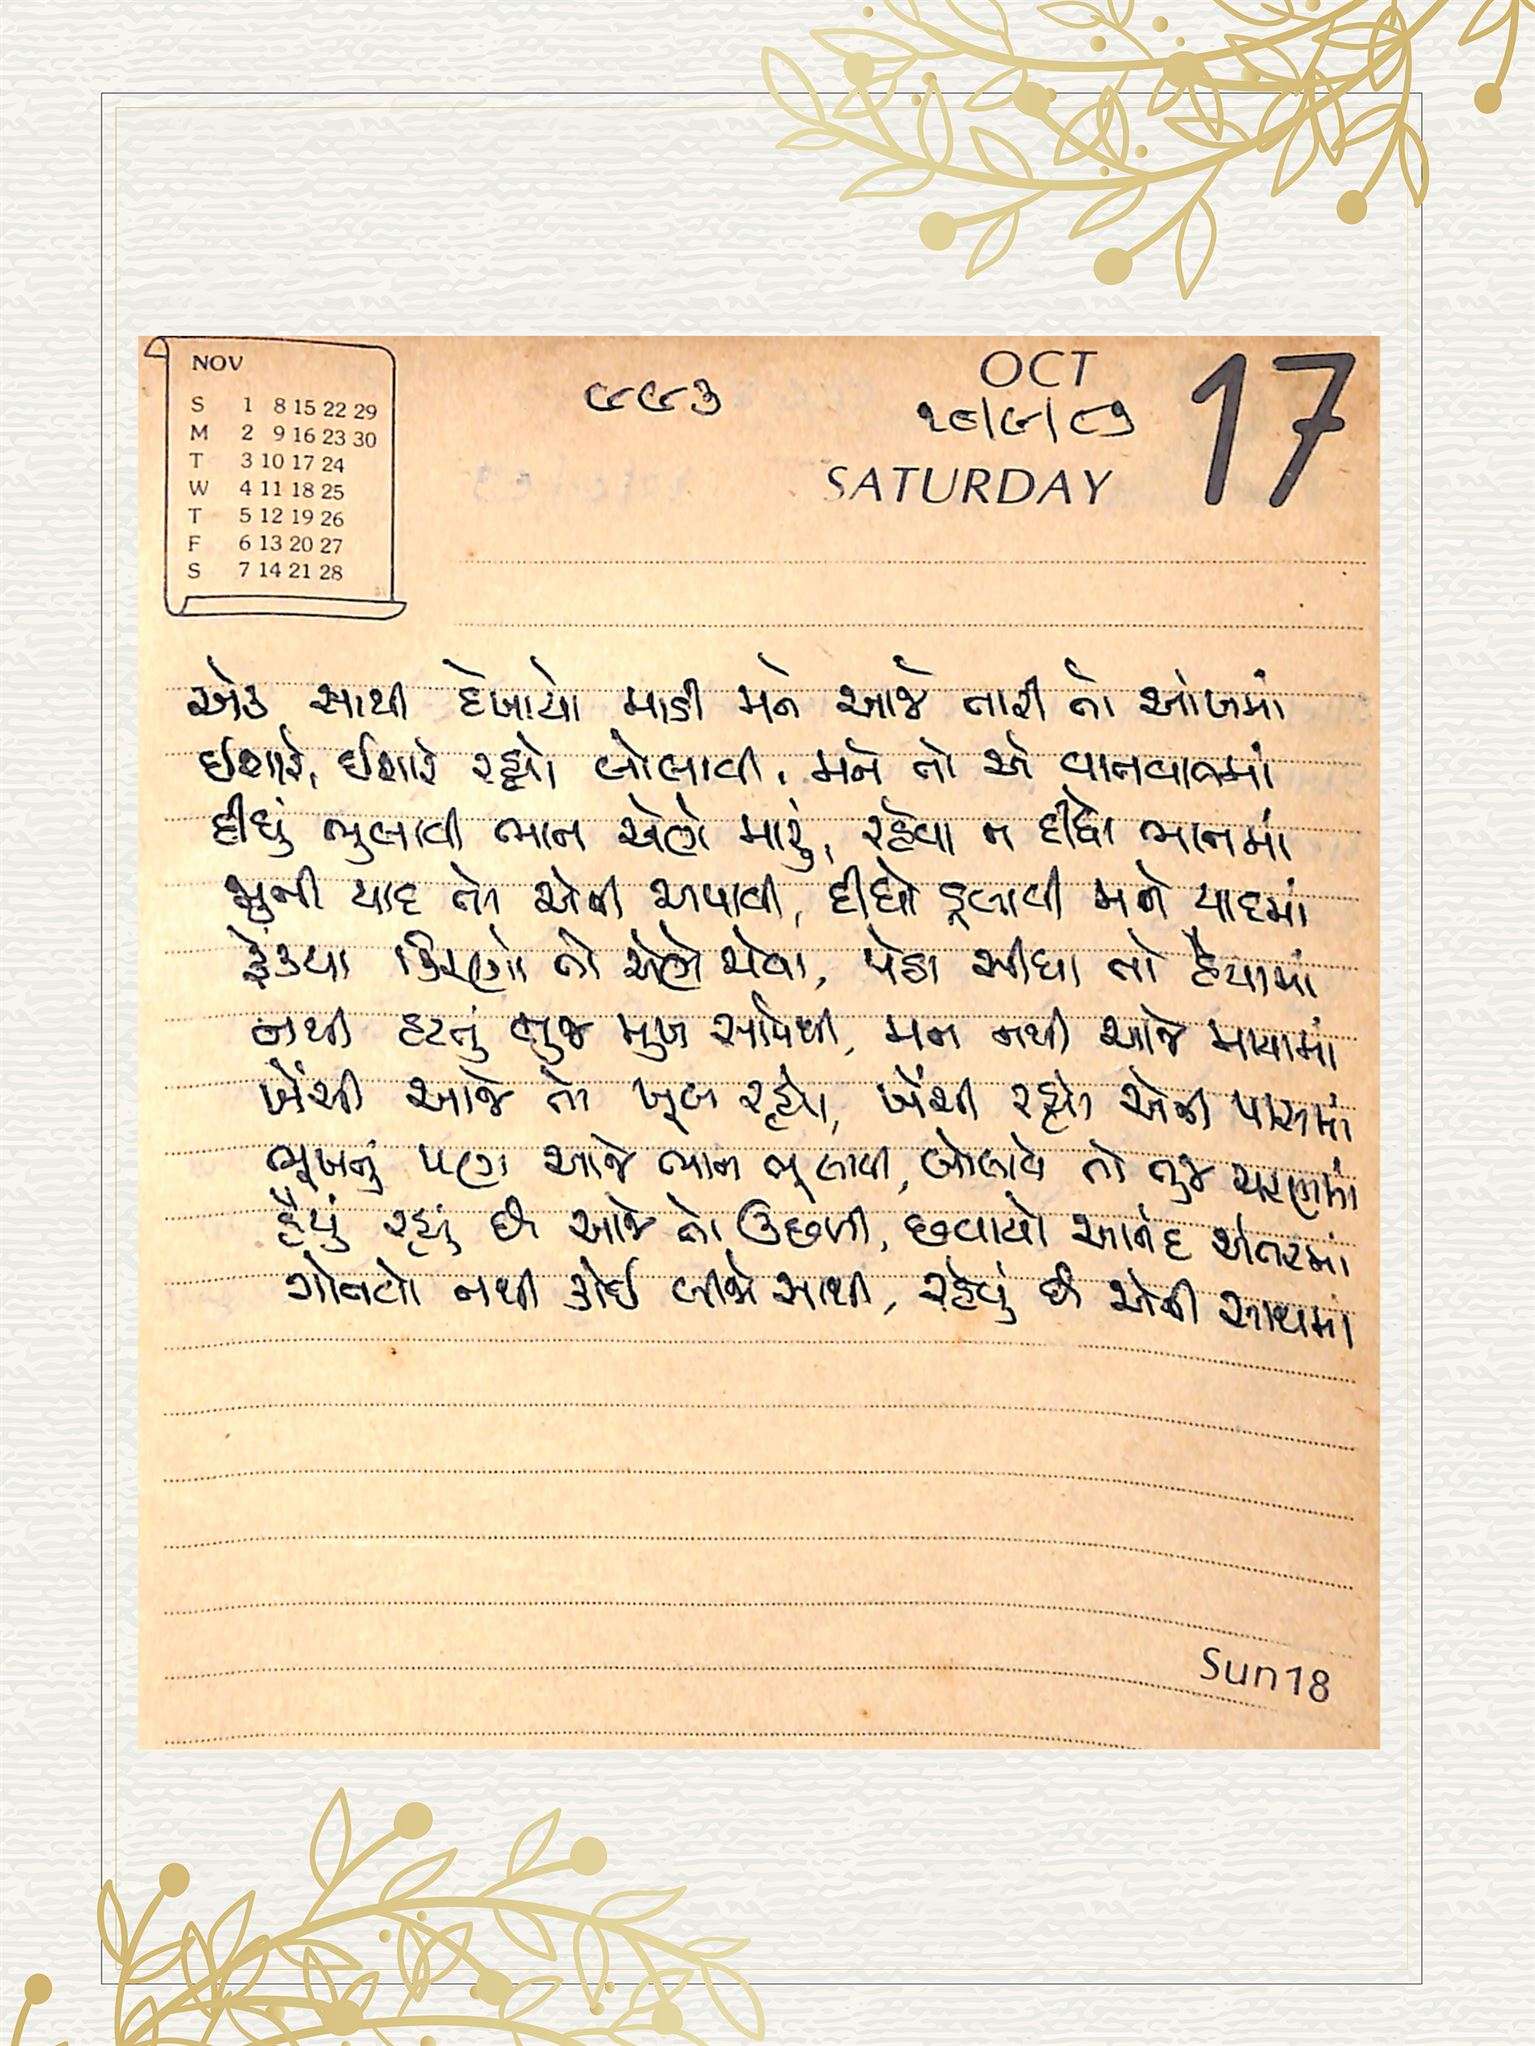 NOV
S 1 8 15 22 29
M 2 9 16 23 30
T 3 10 17 24
W 4 11 18 25
T 5 12 19 26
F 6 13 20 27
S 7 14 21 28
૯૯૩
OCT 17
૧૮/૯/૮૭
SATURDAY
એક સાથી દેખાયો માડી મને આજે તારી તો આંખમાં
ઈશારે, ઈશારે રહ્યો બોલાવી, મને તો એ વાતવાતમાં
દીધું ભુલાવી ભાન એણે મારું, રહેવા ન દીધો ભાનમાં
જુની યાદ તો એની અપાવી, દીધો ડૂબાવી મને યાદમાં
ફેંક્યા કિરણો તો એણે એવા, પેઠા સીધા તો હૈયામાં
નથી હટતું મુજ મુખ સામેથી, મન નથી આજે માયામાં
ખેંચી આજે તો ખૂબ રહ્યો, ખેંચી રહ્યો એની પાસમાં
ભૂખનું પણ આજે ભાન ભૂલાવી, બોલાવે તો તુજ ચરણમાં
હૈયું રહ્યું છે આજે તો ઉછળી, છવાયો આનંદ અંતરમાં
ગોતવો નથી કોઈ બીજો સાથી, રહેવું છે એની સાથમાં
Sun18